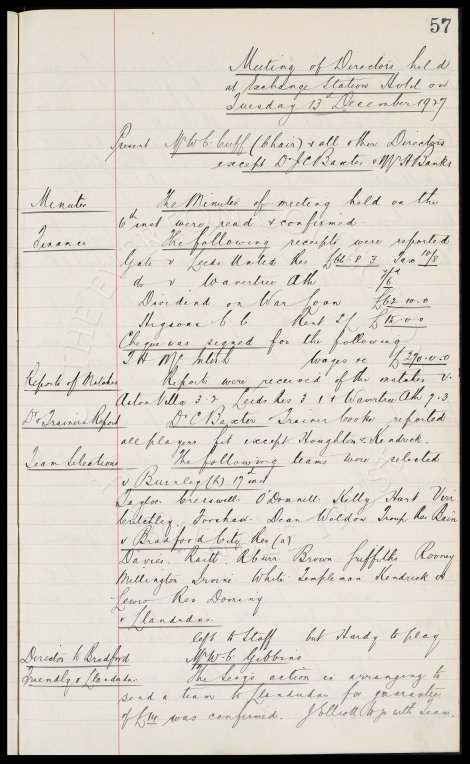 57
Meeting of Directors held
at Exchange Station Hotel on
Tuesday 13th December 1927
Present Mr W. C. Cuff (Chair) & all other Directors
except Dr J C Baxter & Mr H Banks
Minutes The Minutes of meeting held on the
6th inst were read & confirmed.
Finance The following receipts were reported
Gate v Leeds United Res £66. 8. 3 Tax 10/8
do v Wavertree Ath
Dividend on War Loan £62. 10. 0
Higsons Rent £15. 0. 0
Cheque was signed for the following
T H McIntosh Wages &c £290. 0. 0
Reports of Matches Reports were received of the matches v.
Aston Villa 3.2 Leeds Res 3.1 & Wavertree Ath 7.3
Dr & Trainers Report Dr C Baxter Trainer Cooke reported
all players fit except Houghton & Kendrick.
Team Selections The following teams were selected
v Burnley (h) 17th inst
Taylor. Cresswell. O'Donnell. Kelly Hart Virr
Critchley. Forshaw. Dean Weldon Troup Res Bain
v Bradford City Res (a)
Davies. Raitt. Kerr. Brown Griffiths Rooney
Millington Irvine. White Templeman Kendrick or
Lewis Res Dominy
v Llandudno.
left to Staff but Hardy to play
Director to Bradford Mr W. C. Gibbins
Friendly v Llandudno The Secy's action in arranging to
send a team to Llandudno for guarantee
of £14 was confirmed. J Elliott to go with Team.